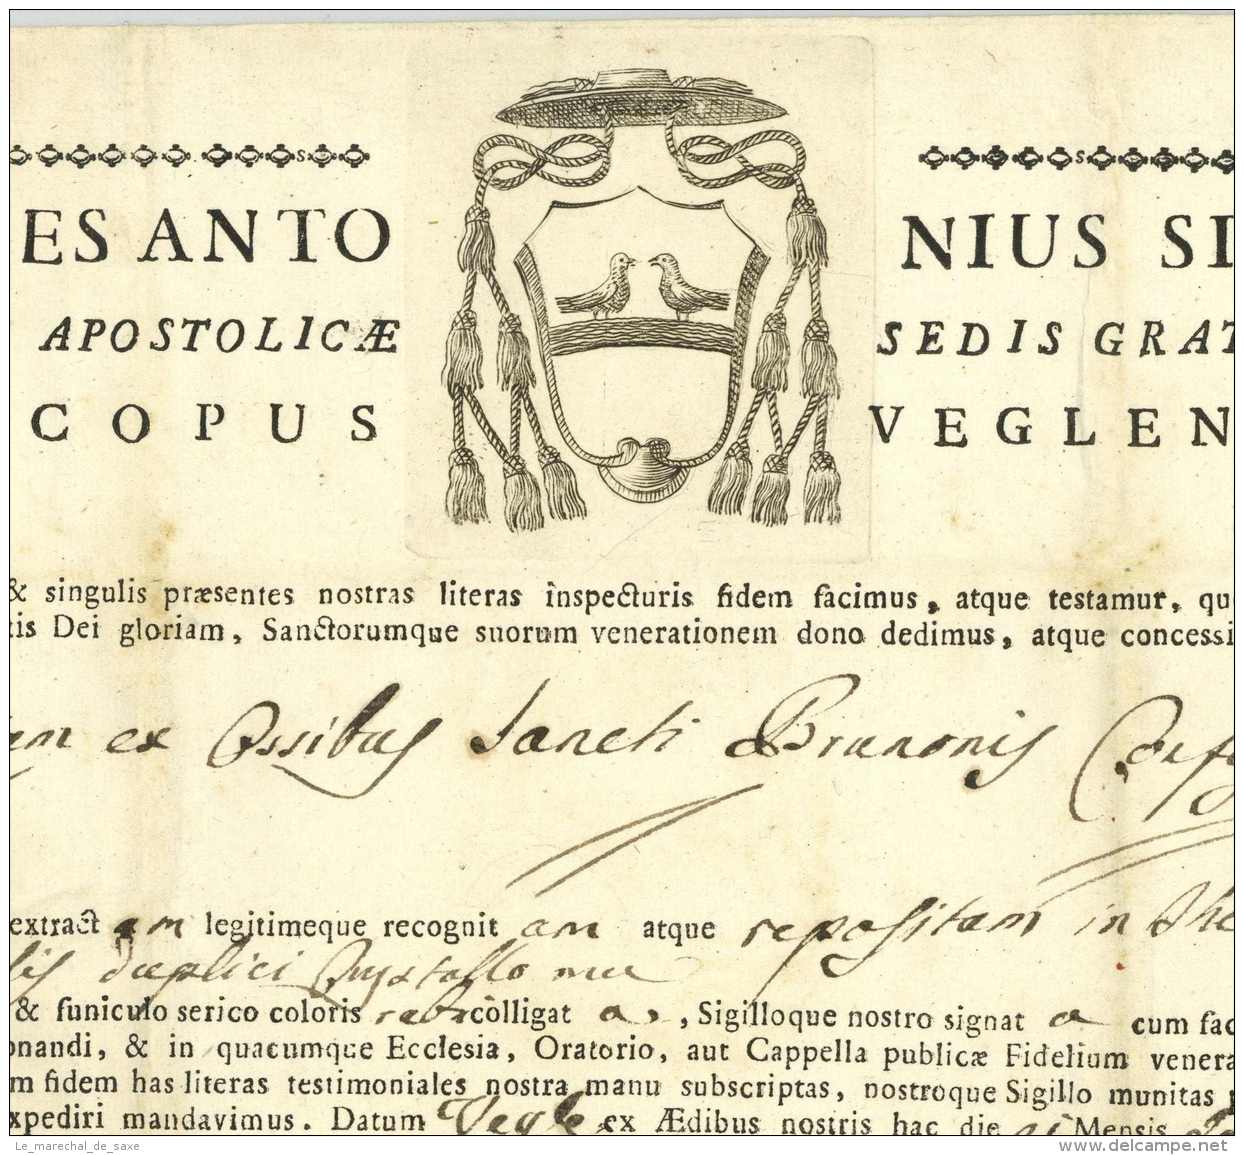 ES ANTO NIUS SI
APOSTOLICÆ SEDIS GRAT
COPUS VEGLEN
& singulis præsentes nostras literas inspecturis fidem facimus, atque testamur, qu
tis Dei gloriam, Sanctorumque suorum venerationem dono dedimus, atque concessi
am ex Ossibus Sancti Brunonis Conf
extract am legitimeque recognit am atque repositam in The
duplici Crystallo
& funiculo serico coloris rubr colligat a, , Sigilloque nostro signat a cum fac
onandi, & in quacumque Ecclesia, Oratorio, aut Cappella publicæ Fidelium venera
m fidem has literas testimoniales nostra manu subscriptas, nostroque Sigillo munitas
xpediri mandavimus. Datum Veglæ ex Ædibus nostris hac die Mensis
Le_marechal_de_saxe
delcampe.net